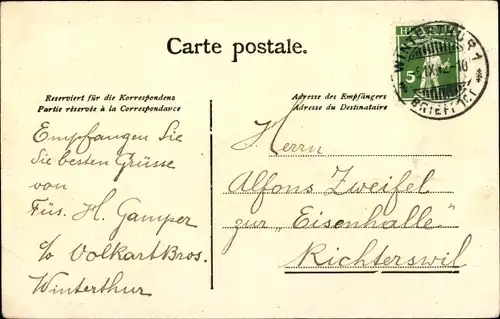 Carte postale.
HELVETIA
5
WINTERTHUR 1
BRIEF
Reserviert für die Korrespondenz
Partie réservée à la Correspondance
Adresse des Empfängers
Adresse du Destinataire
Empfangen Sie
Sie besten Grüsse
von
Füs. H. Gamper
c/o Volkart Bros.
Winterthur
Herrn
Alfons Zweifel
zur "Eisenhalle"
Richterswil